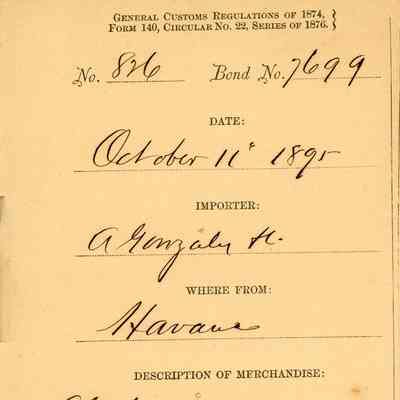 GENERAL CUSTOMS REGULATIONS OF 1874,
FORM 140, CIRCULAR NO. 22, SERIES OF 1876.
No. 826 Bond No. 7699
DATE:
October 11" 1895
IMPORTER:
A Gonzalez
WHERE FROM:
Havana
DESCRIPTION OF MERCHANDISE: